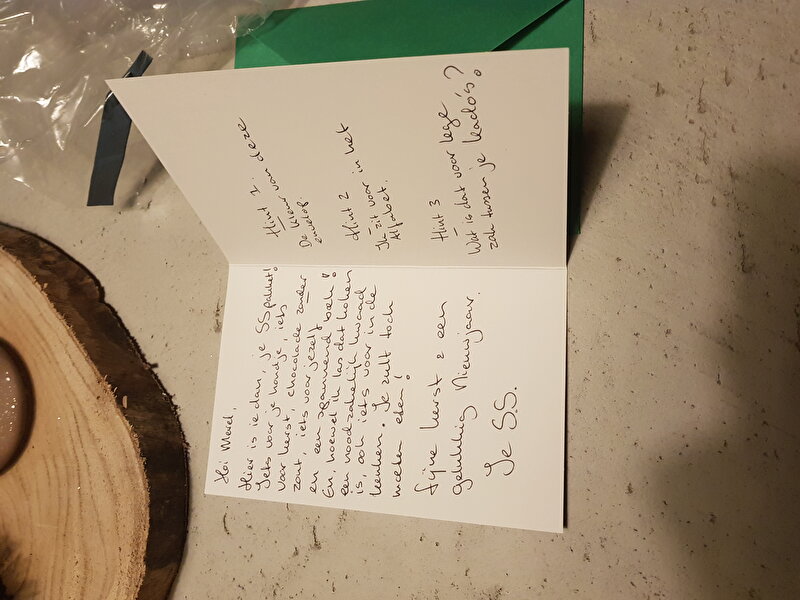 Hoi Merel,
Hier is ie dan, je SS pakket!
Iets voor je hondje, iets
voor kerst, chocolade zonder
zout, iets voor jezelf
en een spannend boek!
En, hoewel ik las dat koken
een noodzakelijk kwaad
is, ook iets voor in de
keuken. Je zult toch
moeten eten!
Fijne kerst & een
gelukkig Nieuwjaar.
Je S.S.
Hint 1
De kleur van deze
envelop
Hint 2
Ik zit voor in het
Alfabet.
Hint 3
Wat is dat voor lege
zak tussen je kado's?